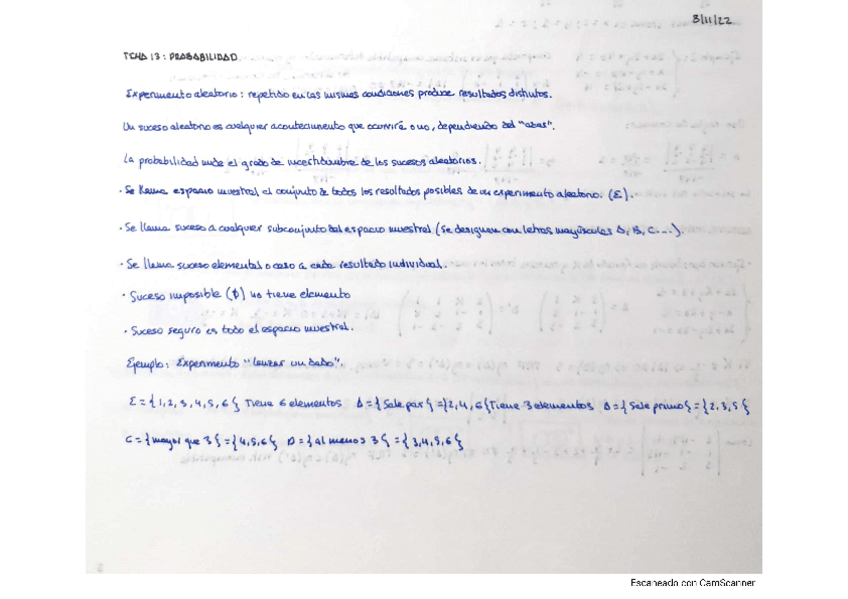 8/11/22
TEMA 13: PROBABILIDAD.
Experimento aleatorio: repetido en las mismas condiciones produce resultados distintos.
Un suceso aleatorio es cualquier acontecimiento que ocurrirá o no, dependiendo del "azar".
La probabilidad mide el grado de incertidumbre de los sucesos aleatorios.
· Se llama espacio muestral el conjunto de todos los resultados posibles de un experimento aleatorio. (E).
· Se llama suceso a cualquier subconjunto del espacio muestral (se designan con letras mayúsculas A, B, C....).
· Se llama suceso elemental o caso a cada resultado individual.
· Suceso imposible (∅) no tiene elemento
· Suceso seguro es todo el espacio muestral.
Ejemplo: Experimento "lanzar un dado".
E = {1, 2, 3, 4, 5, 6} Tiene 6 elementos A = {Sale par} = {2, 4, 6} Tiene 3 elementos B = {Sale primo} = {2, 3, 5}
C = {mayor que 3} = {4, 5, 6} D = {al menos 3} = {3, 4, 5, 6}
Escaneado con CamScanner